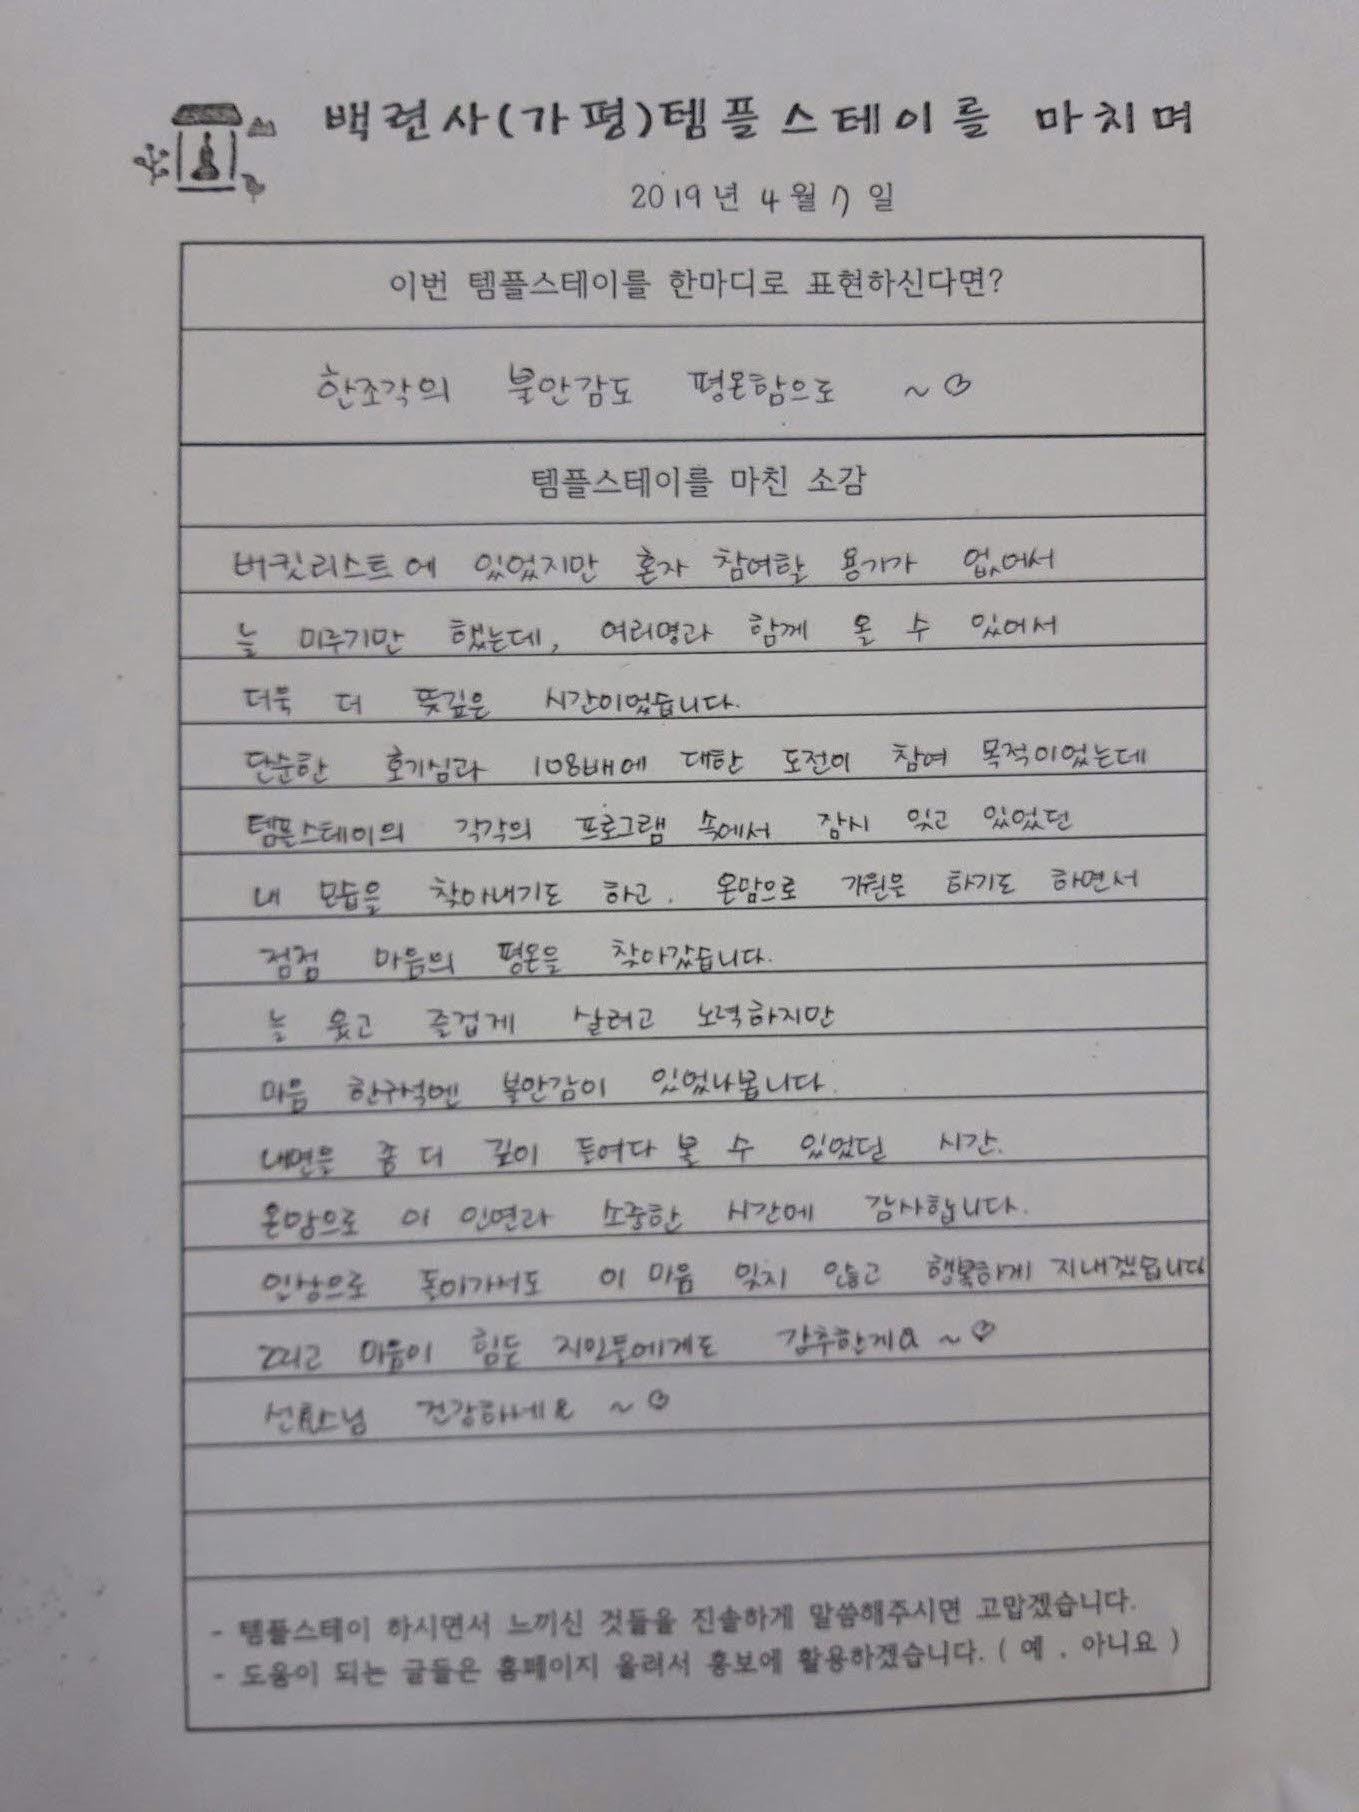 백련사(가평)템플스테이를 마치며
2019년 4월 7일
이번 템플스테이를 한마디로 표현하신다면?
한조각의 불안감도 평온함으로 ~♡
템플스테이를 마친 소감
버킷리스트에 있었지만 혼자 참여할 용기가 없어서
늘 미루기만 했는데, 여러명과 함께 올 수 있어서
더욱 더 뜻깊은 시간이었습니다.
단순한 호기심과 108배에 대한 도전이 참여 목적이었는데
템플스테이의 각각의 프로그램 속에서 잠시 잊고 있었던
내 모습을 찾아내기도 하고. 온맘으로 기원을 하기도 하면서
점점 마음의 평온을 찾아갔습니다.
늘 웃고 즐겁게 살려고 노력하지만
마음 한구석엔 불안감이 있었나봅니다.
내면을 좀 더 깊이 들여다 볼 수 있었던 시간.
온맘으로 이 인연과 소중한 시간에 감사합니다.
일상으로 돌아가서도 이 마음 잊지 않고 행복하게 지내겠습니다
그리고 마음이 힘든 지인들에게도 강추할게요 ~♡
건강하세요 ~♡
- 템플스테이 하시면서 느끼신 것들을 진솔하게 말씀해주시면 고맙겠습니다.
- 도움이 되는 글들은 홈페이지 올려서 홍보에 활용하겠습니다. ( 예 . 아니요 )